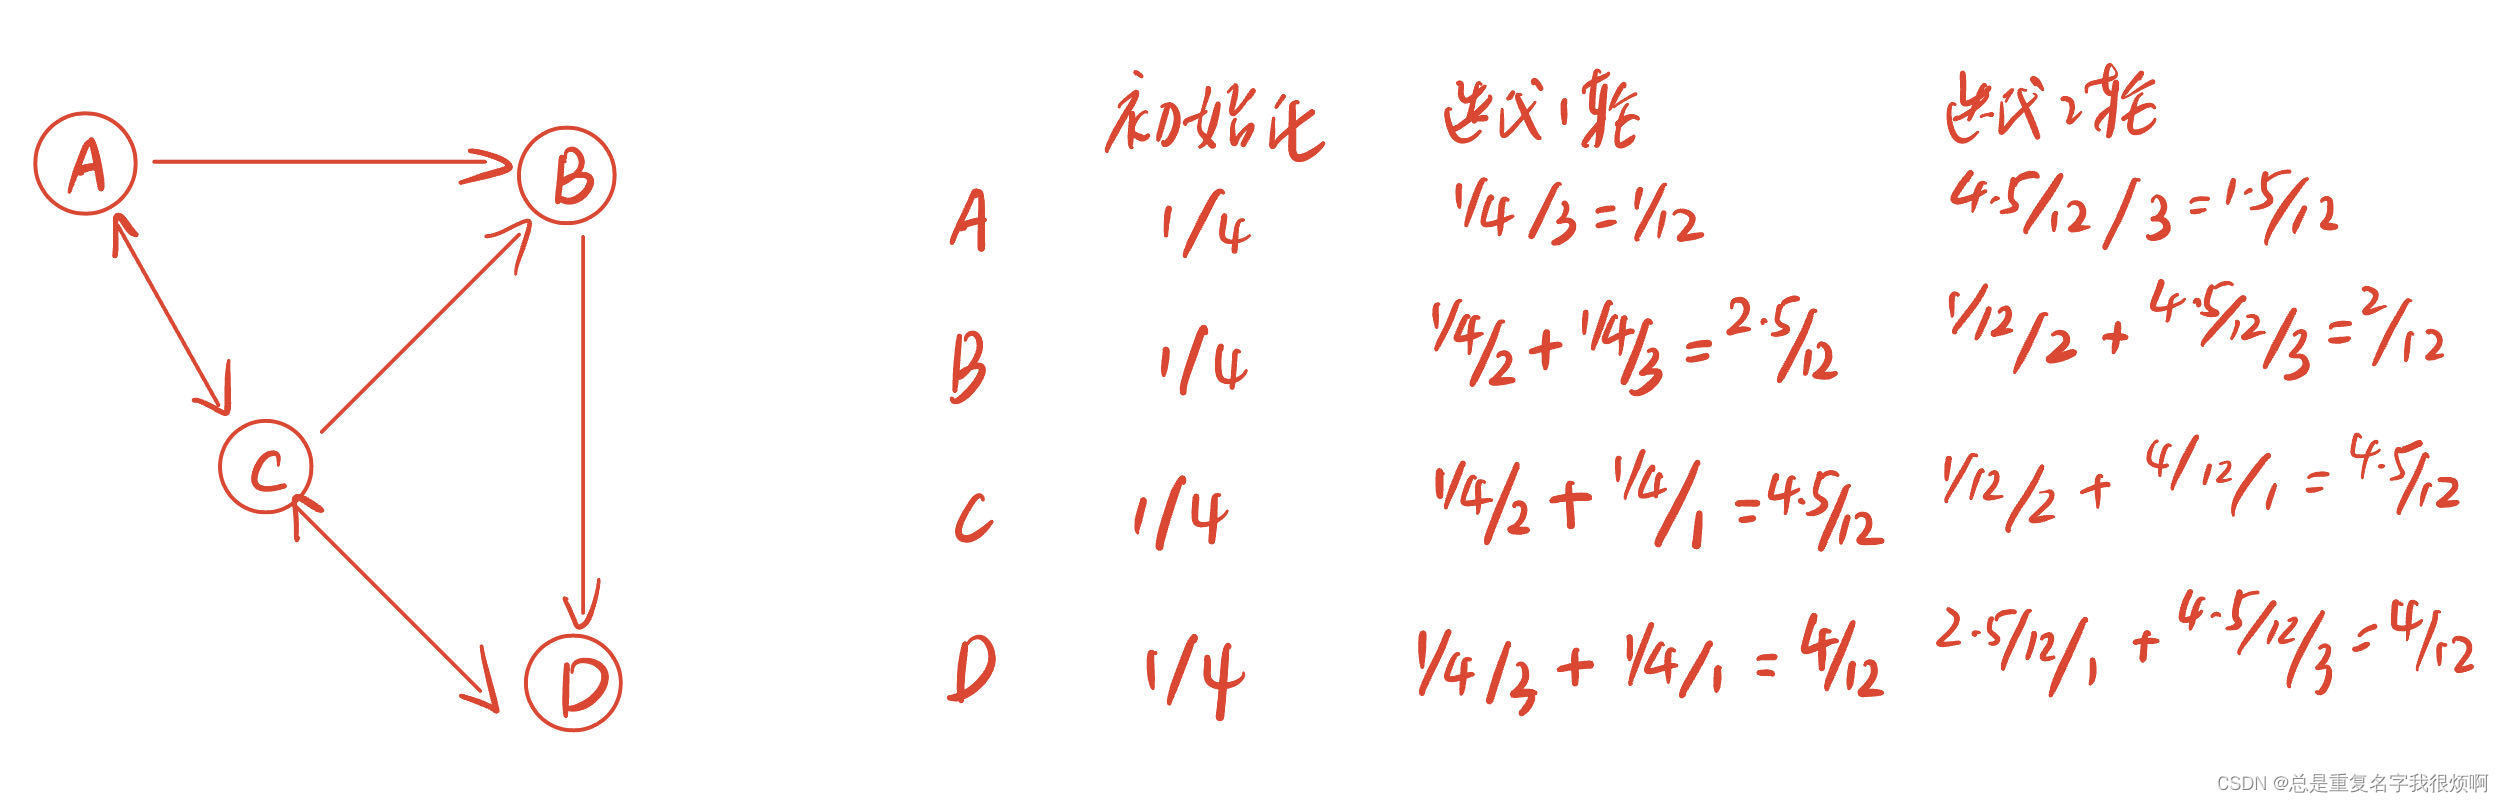 A
B
C
D
初始化 迭代1轮 迭代2轮
A 1/4 1/4/3=1/12 4.5/12/3=1.5/12
B 1/4 1/4/2+1/4/3=2.5/12 1/12/2+4.5/12/3=2/12
C 1/4 1/4/2+1/4/1=4.5/12 1/12/2+4/12/1=4.5/12
D 1/4 1/4/3+1/4/1=4/12 2.5/12/1+4.5/12/3=4/12
CSDN @总是重复名字我很烦啊